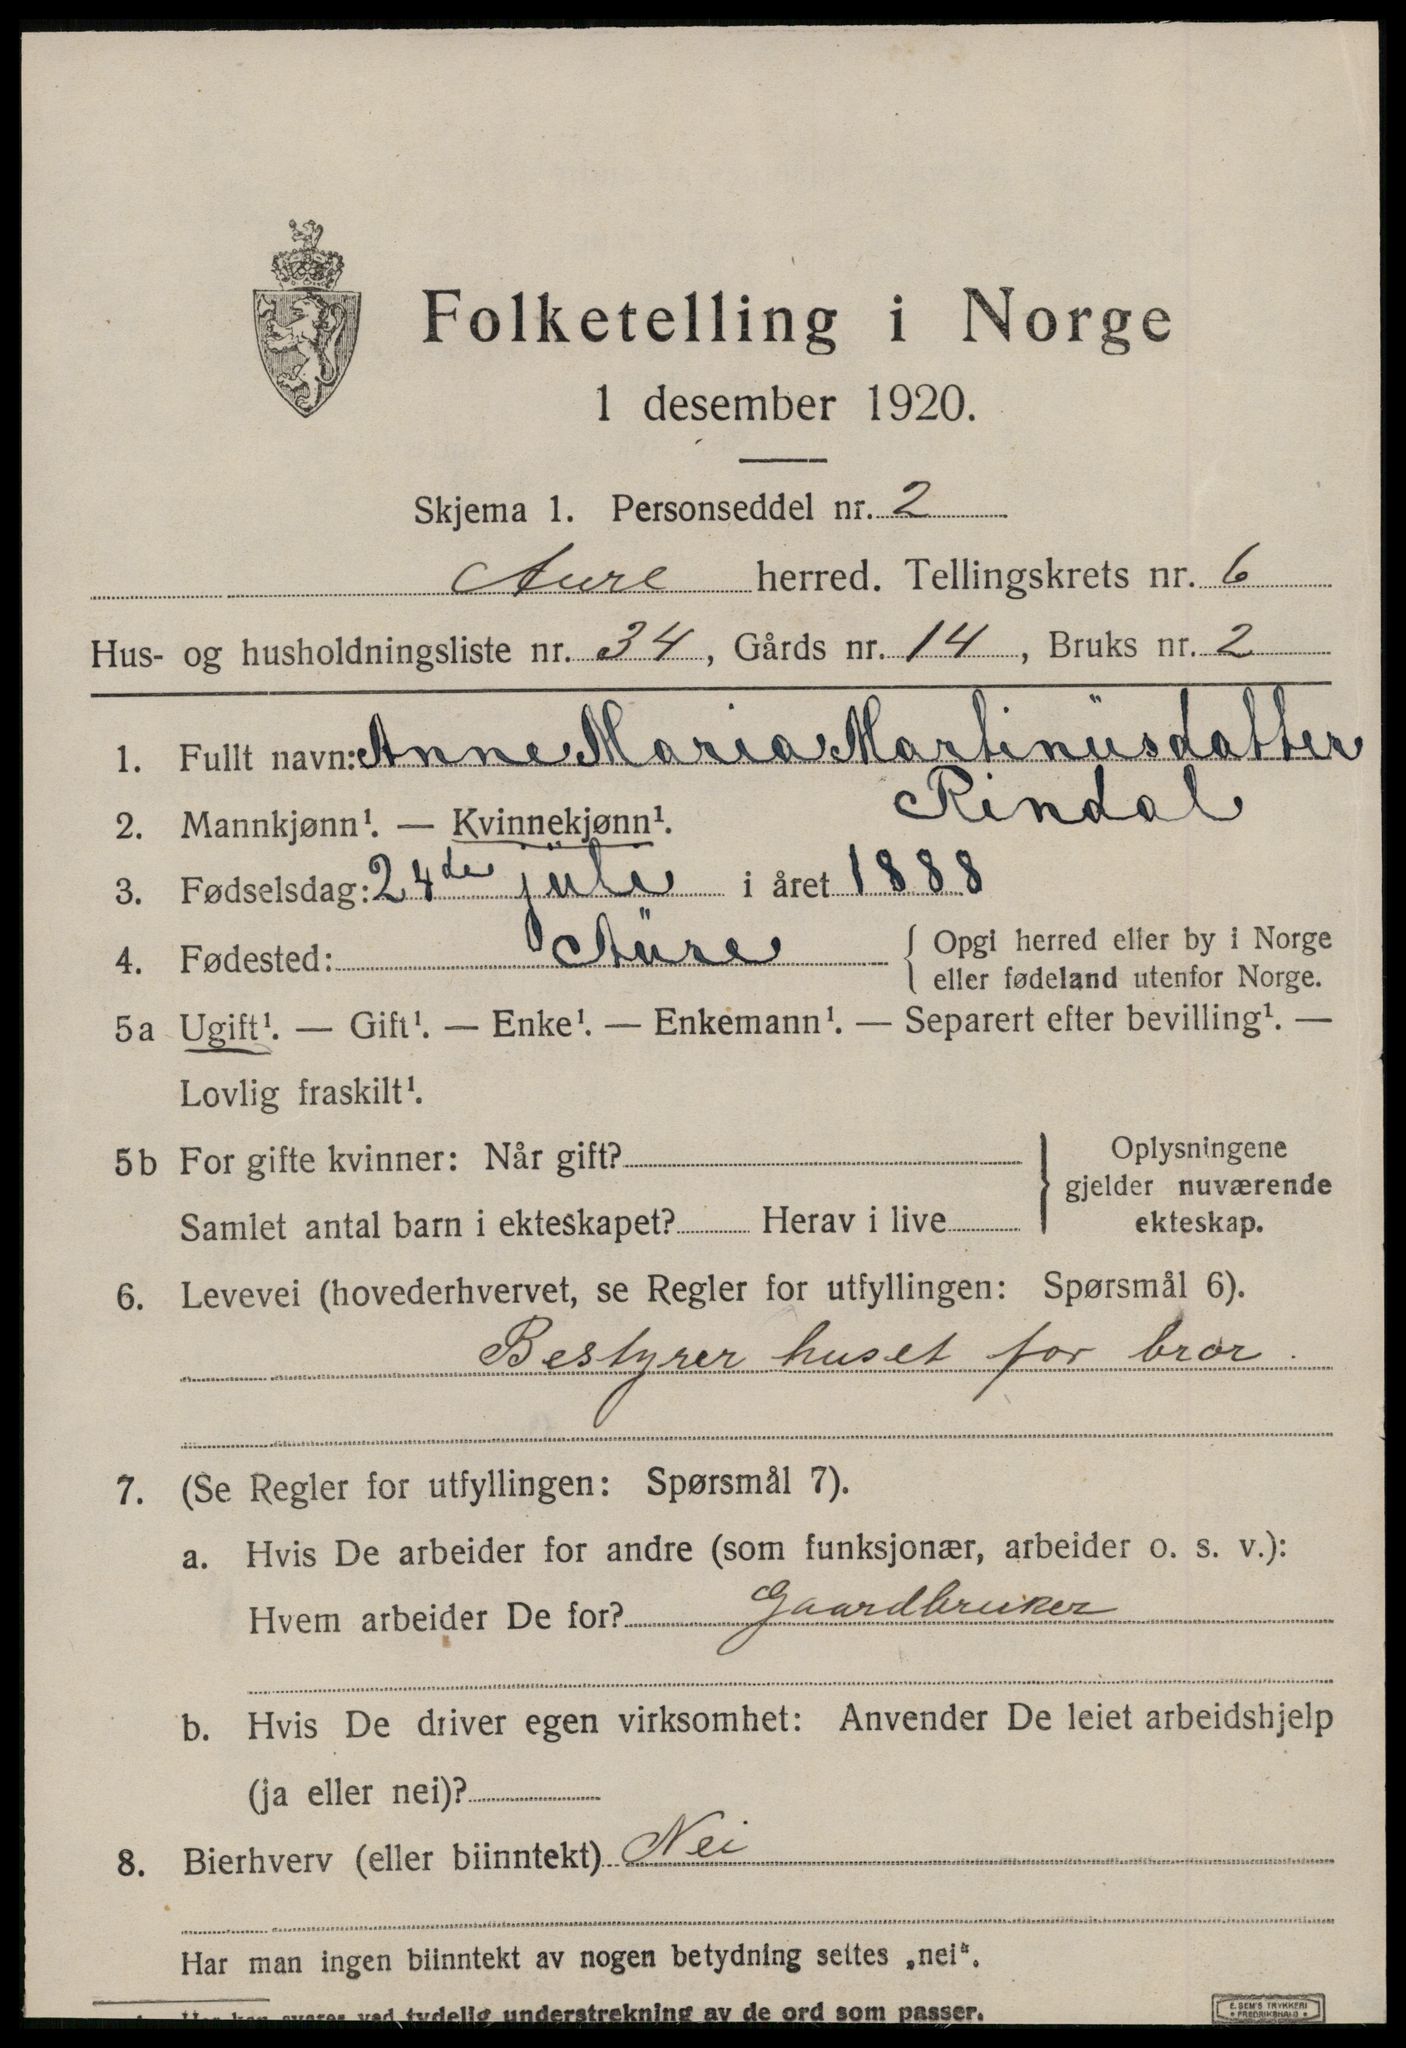 Folketelling i Norge
1 desember 1920.
Skjema 1. Personseddel nr. 2
Aure herred. Tellingskrets nr. 6
Hus- og husholdningsliste nr. 34, Gårds nr. 14, Bruks nr. 2
1. Fullt navn: Anne Maria Martinusdatter
Rindal
2. Mannkjønn¹. — Kvinnekjønn¹.
3. Fødselsdag: 24de juli i året 1888
4. Fødested: Aure { Opgi herred eller by i Norge
eller fødeland utenfor Norge.
5a Ugift¹. — Gift¹. — Enke¹. — Enkemann¹. — Separert efter bevilling¹. —
Lovlig fraskilt¹.
5b For gifte kvinner: Når gift?
Samlet antal barn i ekteskapet? Herav i live
} Oplysningene
gjelder nuværende
ekteskap.
6. Levevei (hovederhvervet, se Regler for utfyllingen: Spørsmål 6).
Bestyrer huset for bror.
7. (Se Regler for utfyllingen: Spørsmål 7).
a. Hvis De arbeider for andre (som funksjonær, arbeider o. s. v.):
Hvem arbeider De for? Gaardbruker
b. Hvis De driver egen virksomhet: Anvender De leiet arbeidshjelp
(ja eller nei)?
8. Bierhverv (eller biinntekt) Nei
Har man ingen biinntekt av nogen betydning settes „nei“.
svares ved tydelig understrekning av de ord som passer.
E. SEM'S TRYKKERI
FREDRIKSHALD